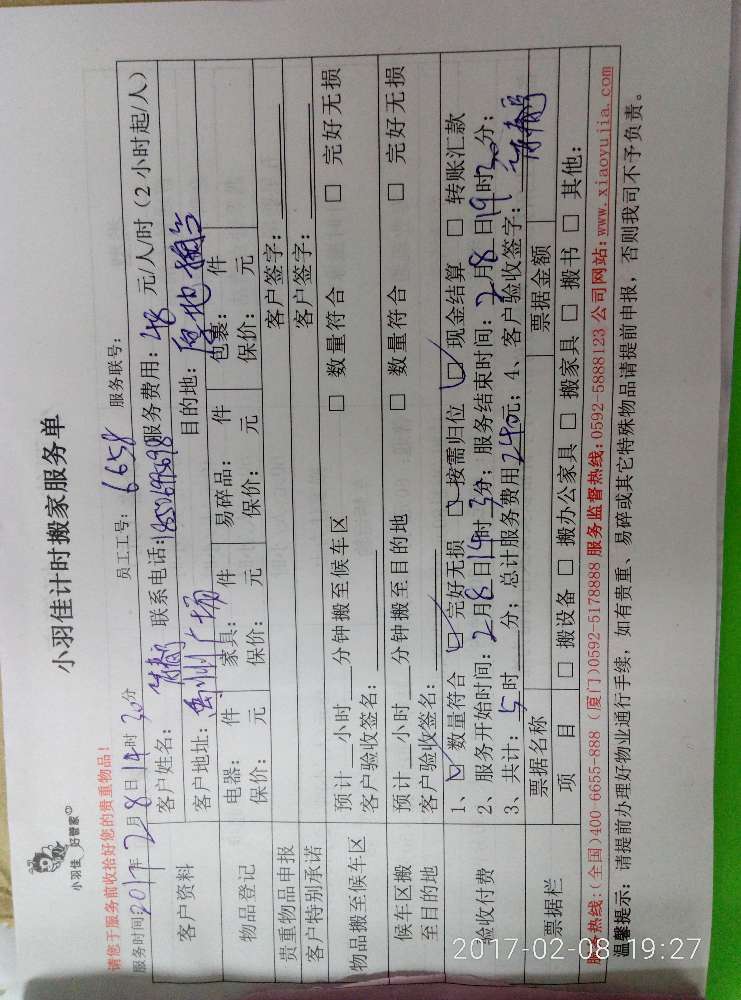 小羽佳 好管家
小羽佳计时搬家服务单
请您于服务前收拾好您的贵重物品!
服务时间2017年2月8日14时30分 员工工号: 6658 服务联号:
客户资料 客户姓名: 联系电话: 服务费用: 48 元/人/时（2小时起/人）
客户地址: 禹州广场 目的地: 原地搬台
物品登记 电器: 件 家具: 件 易碎品: 件 包裹: 件
保价: 元 保价: 元 保价: 元 保价: 元
贵重物品申报 客户签字:
客户特别承诺 客户签字:
物品搬至候车区 预计__小时__分钟搬至候车区 □ 数量符合 □ 完好无损
客户验收签名:
候车区搬至目的地 预计__小时__分钟搬至目的地 □ 数量符合 □ 完好无损
客户验收签名:
验收付费 1、☑ 数量符合 ☑ 完好无损 ☑ 按需归位 ☑ 现金结算 □ 转账汇款
2、服务开始时间: 2月8日14时30分; 服务结束时间: 2月8日19时30分;
3、共计: 5时__分; 总计服务费用240元; 4、客户验收签字:
票据栏 票据名称 票据金额
项 目 □ 搬设备 □ 搬办公家具 □ 搬家具 □ 搬书 □ 其他:
服务热线:(全国)400 6655-888 (厦门)0592-5178888 服务监督热线:0592-5888123 公司网站:www.xiaoyujia.com
温馨提示: 请提前办理好物业通行手续，如有贵重、易碎或其它特殊物品请提前申报，否则我司不予负责。
2017-02-08 19:27